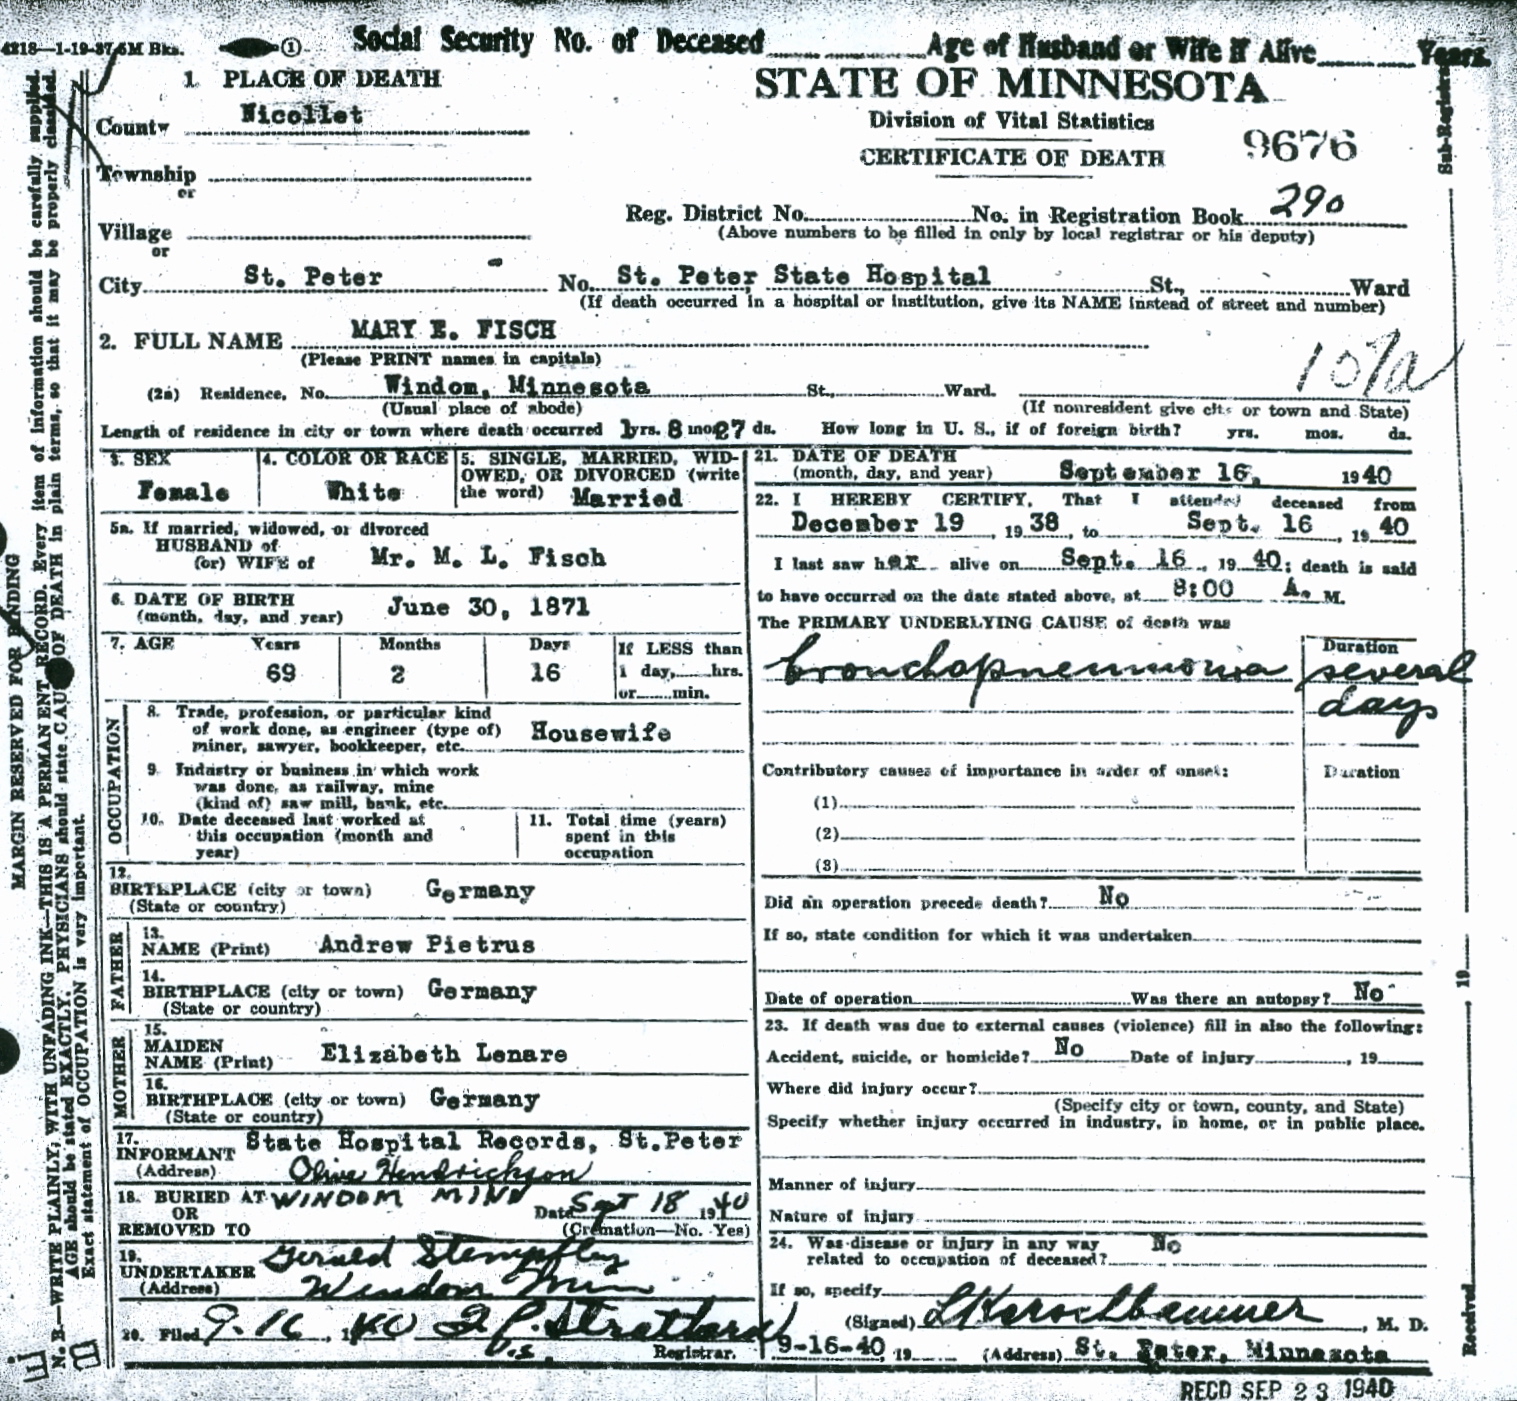 4218—1-19-37 5M Bks. ① Social Security No. of Deceased Age of Husband or Wife if Alive Years.
1. PLACE OF DEATH
STATE OF MINNESOTA
County Nicollet
Division of Vital Statistics
CERTIFICATE OF DEATH
9676
Township
or
Reg. District No. No. in Registration Book 290
(Above numbers to be filled in only by local registrar or his deputy)
Village
or
City St. Peter No. St. Peter State Hospital St., Ward
(If death occurred in a hospital or institution, give its NAME instead of street and number)
2. FULL NAME MARY E. FISCH
(Please PRINT names in capitals)
107a
(2a) Residence, No. Windom, Minnesota St., Ward.
(Usual place of abode) (If nonresident give city or town and State)
Length of residence in city or town where death occurred 1 yrs. 8 mos. 27 ds. How long in U. S., if of foreign birth? yrs. mos. ds.
3. SEX
Female
4. COLOR OR RACE
White
5. SINGLE, MARRIED, WID-
OWED, OR DIVORCED (write
the word) Married
5a. If married, widowed, or divorced
HUSBAND of
(or) WIFE of Mr. M. L. Fisch
6. DATE OF BIRTH
(month, day, and year) June 30, 1871
7. AGE Years Months Days If LESS than
69 2 16 1 day, hrs.
or min.
OCCUPATION
8. Trade, profession, or particular kind
of work done, as engineer (type of)
miner, sawyer, bookkeeper, etc. Housewife
9. Industry or business in which work
was done, as railway, mine
(kind of) saw mill, bank, etc.
10. Date deceased last worked at
this occupation (month and
year)
11. Total time (years)
spent in this
occupation
12.
BIRTHPLACE (city or town) Germany
(State or country)
FATHER
13.
NAME (Print) Andrew Pietrus
14.
BIRTHPLACE (city or town) Germany
(State or country)
MOTHER
15.
MAIDEN
NAME (Print) Elizabeth Lenare
16.
BIRTHPLACE (city or town) Germany
(State or country)
17.
INFORMANT State Hospital Records, St.Peter
(Address) Olive Hendrickson
18. BURIED AT WINDOM MINN
OR Date Sept 18 1940
REMOVED TO (Cremation—No. Yes)
19.
UNDERTAKER Gerald Stempfley
(Address) Windom Minn
20. Filed 9-16, 1940
Registrar.
21. DATE OF DEATH
(month, day, and year) September 16, 1940
22. I HEREBY CERTIFY, That I attended deceased from
December 19, 1938, to Sept. 16, 1940
I last saw her alive on Sept. 16, 1940; death is said
to have occurred on the date stated above, at 8:00 A. M.
The PRIMARY UNDERLYING CAUSE of death was
Duration
bronchopneumonia several
days
Contributory causes of importance in order of onset: Duration
(1)
(2)
(3)
Did an operation precede death? No
If so, state condition for which it was undertaken
Date of operation Was there an autopsy? No
23. If death was due to external causes (violence) fill in also the following:
Accident, suicide, or homicide? No Date of injury, 19
Where did injury occur?
(Specify city or town, county, and State)
Specify whether injury occurred in industry, in home, or in public place.
Manner of injury
Nature of injury
24. Was disease or injury in any way No
related to occupation of deceased?
If so, specify
(Signed), M. D.
9-16-40, 19 (Address) St. Peter, Minnesota
RECD SEP 23 1940
MARGIN RESERVED FOR BINDING
N. B.—WRITE PLAINLY, WITH UNFADING INK—THIS IS A PERMANENT RECORD. Every item of information should be carefully supplied.
AGE should be stated EXACTLY. PHYSICIANS should state CAUSE OF DEATH in plain terms, so that it may be properly classified.
Exact statement of OCCUPATION is very important.
Received 19 Sub-Registrar